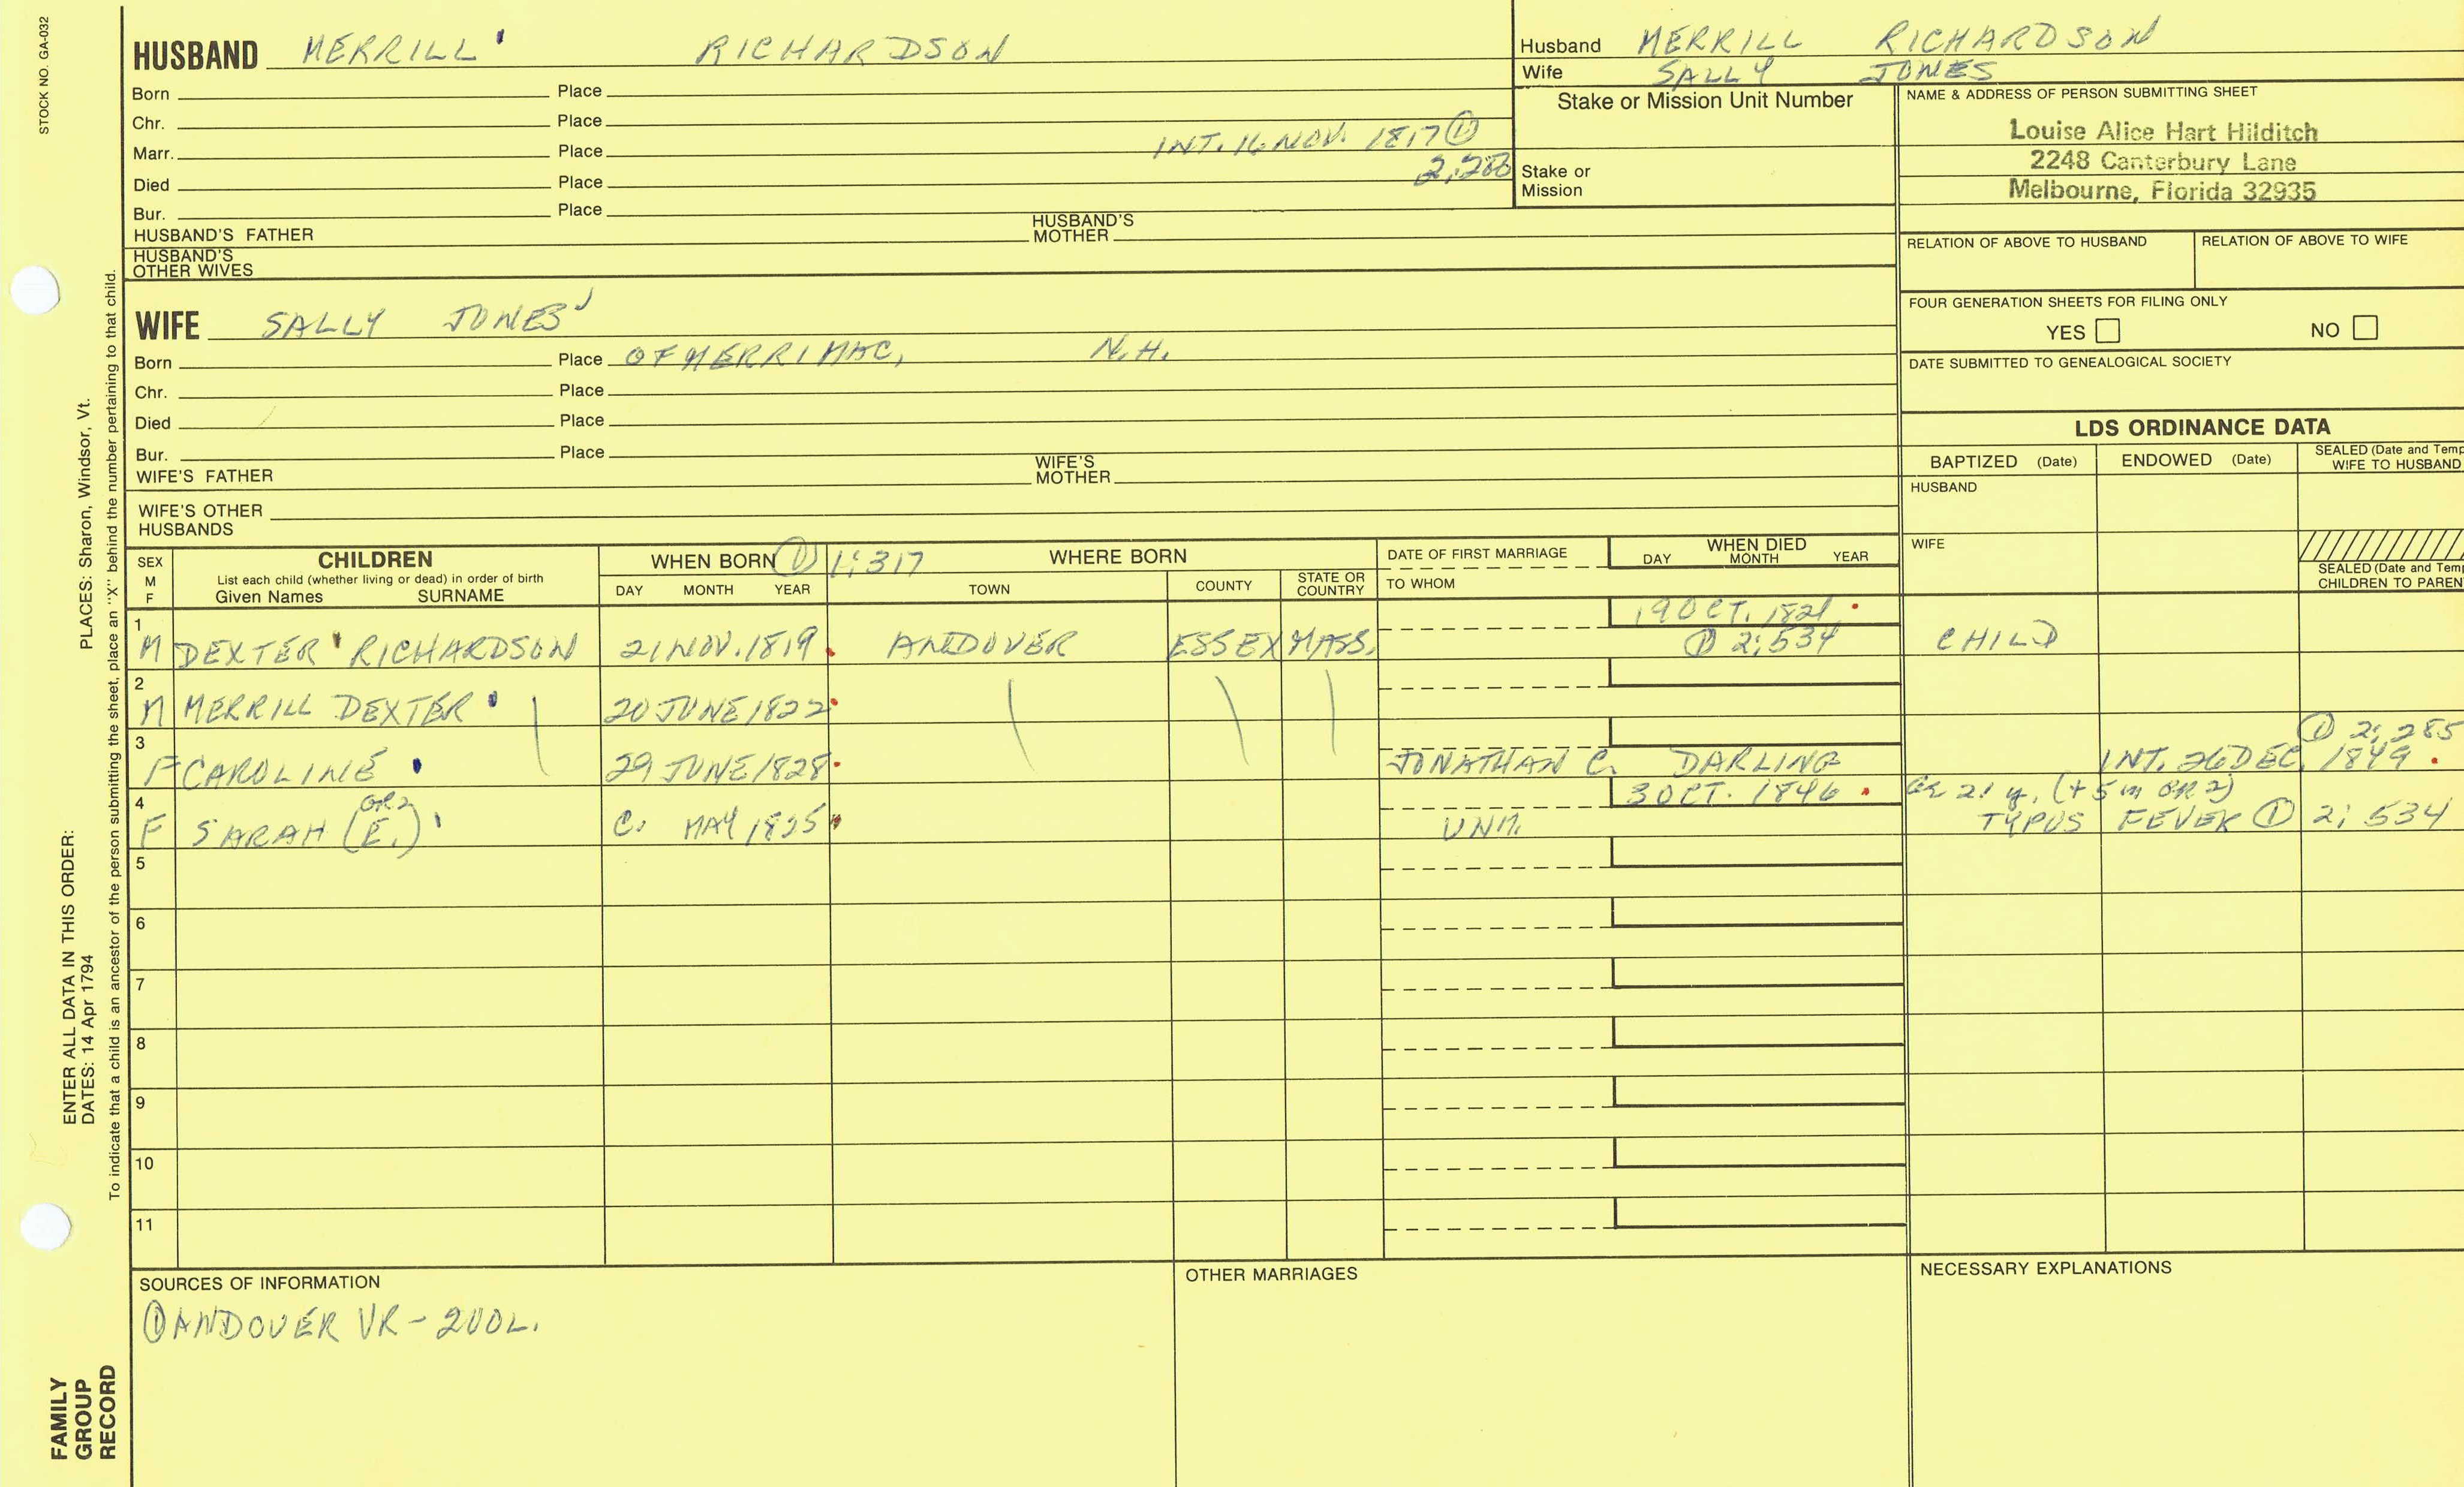 STOCK NO. GA-032
HUSBAND MERRILL RICHARDSON
Born Place
Chr. Place
Marr. Place INT. 16 NOV. 1817 ①
Died Place
Bur. Place
HUSBAND'S FATHER HUSBAND'S MOTHER
HUSBAND'S OTHER WIVES
WIFE SALLY JONES
Born Place OF MERRIMAC, N.H.
Chr. Place
Died Place
Bur. Place
WIFE'S FATHER WIFE'S MOTHER
WIFE'S OTHER HUSBANDS
Husband MERRILL RICHARDSON
Wife SALLY JONES
Stake or Mission Unit Number
Stake or Mission
NAME & ADDRESS OF PERSON SUBMITTING SHEET
Louise Alice Hart Hilditch
2248 Canterbury Lane
Melbourne, Florida 32935
RELATION OF ABOVE TO HUSBAND RELATION OF ABOVE TO WIFE
FOUR GENERATION SHEETS FOR FILING ONLY
YES NO
DATE SUBMITTED TO GENEALOGICAL SOCIETY
LDS ORDINANCE DATA
BAPTIZED (Date) ENDOWED (Date) SEALED (Date and Temp
WIFE TO HUSBAND
HUSBAND
WIFE
SEALED (Date and Temp
CHILDREN TO PAREN
SEX M F
CHILDREN
List each child (whether living or dead) in order of birth
Given Names SURNAME
WHEN BORN ① 1:317 WHERE BORN
DAY MONTH YEAR TOWN COUNTY STATE OR COUNTRY
DATE OF FIRST MARRIAGE
TO WHOM
WHEN DIED
DAY MONTH YEAR
1 19 OCT. 1821
M DEXTER RICHARDSON 21 NOV. 1819 ANDOVER ESSEX MASS. ① 2:534 CHILD
2
M MERRILL DEXTER 20 JUNE 1822
3 ① 2:285
F CAROLINE 29 JUNE 1828 JONATHAN C. DARLING INT. 26 DEC. 1849
4 OR 2 3 OCT. 1846 ae 21 y. (+ 5 m OR 2)
F SARAH (E.) C. MAY 1825 UNM. TYPUS FEVER ① 2:534
5
6
7
8
9
10
11
SOURCES OF INFORMATION
① ANDOVER VR - 2 VOL.
OTHER MARRIAGES
NECESSARY EXPLANATIONS
ENTER ALL DATA IN THIS ORDER:
DATES: 14 Apr 1794 PLACES: Sharon, Windsor, Vt.
To indicate that a child is an ancestor of the person submitting the sheet, place an "X" behind the number pertaining to that child.
FAMILY
GROUP
RECORD